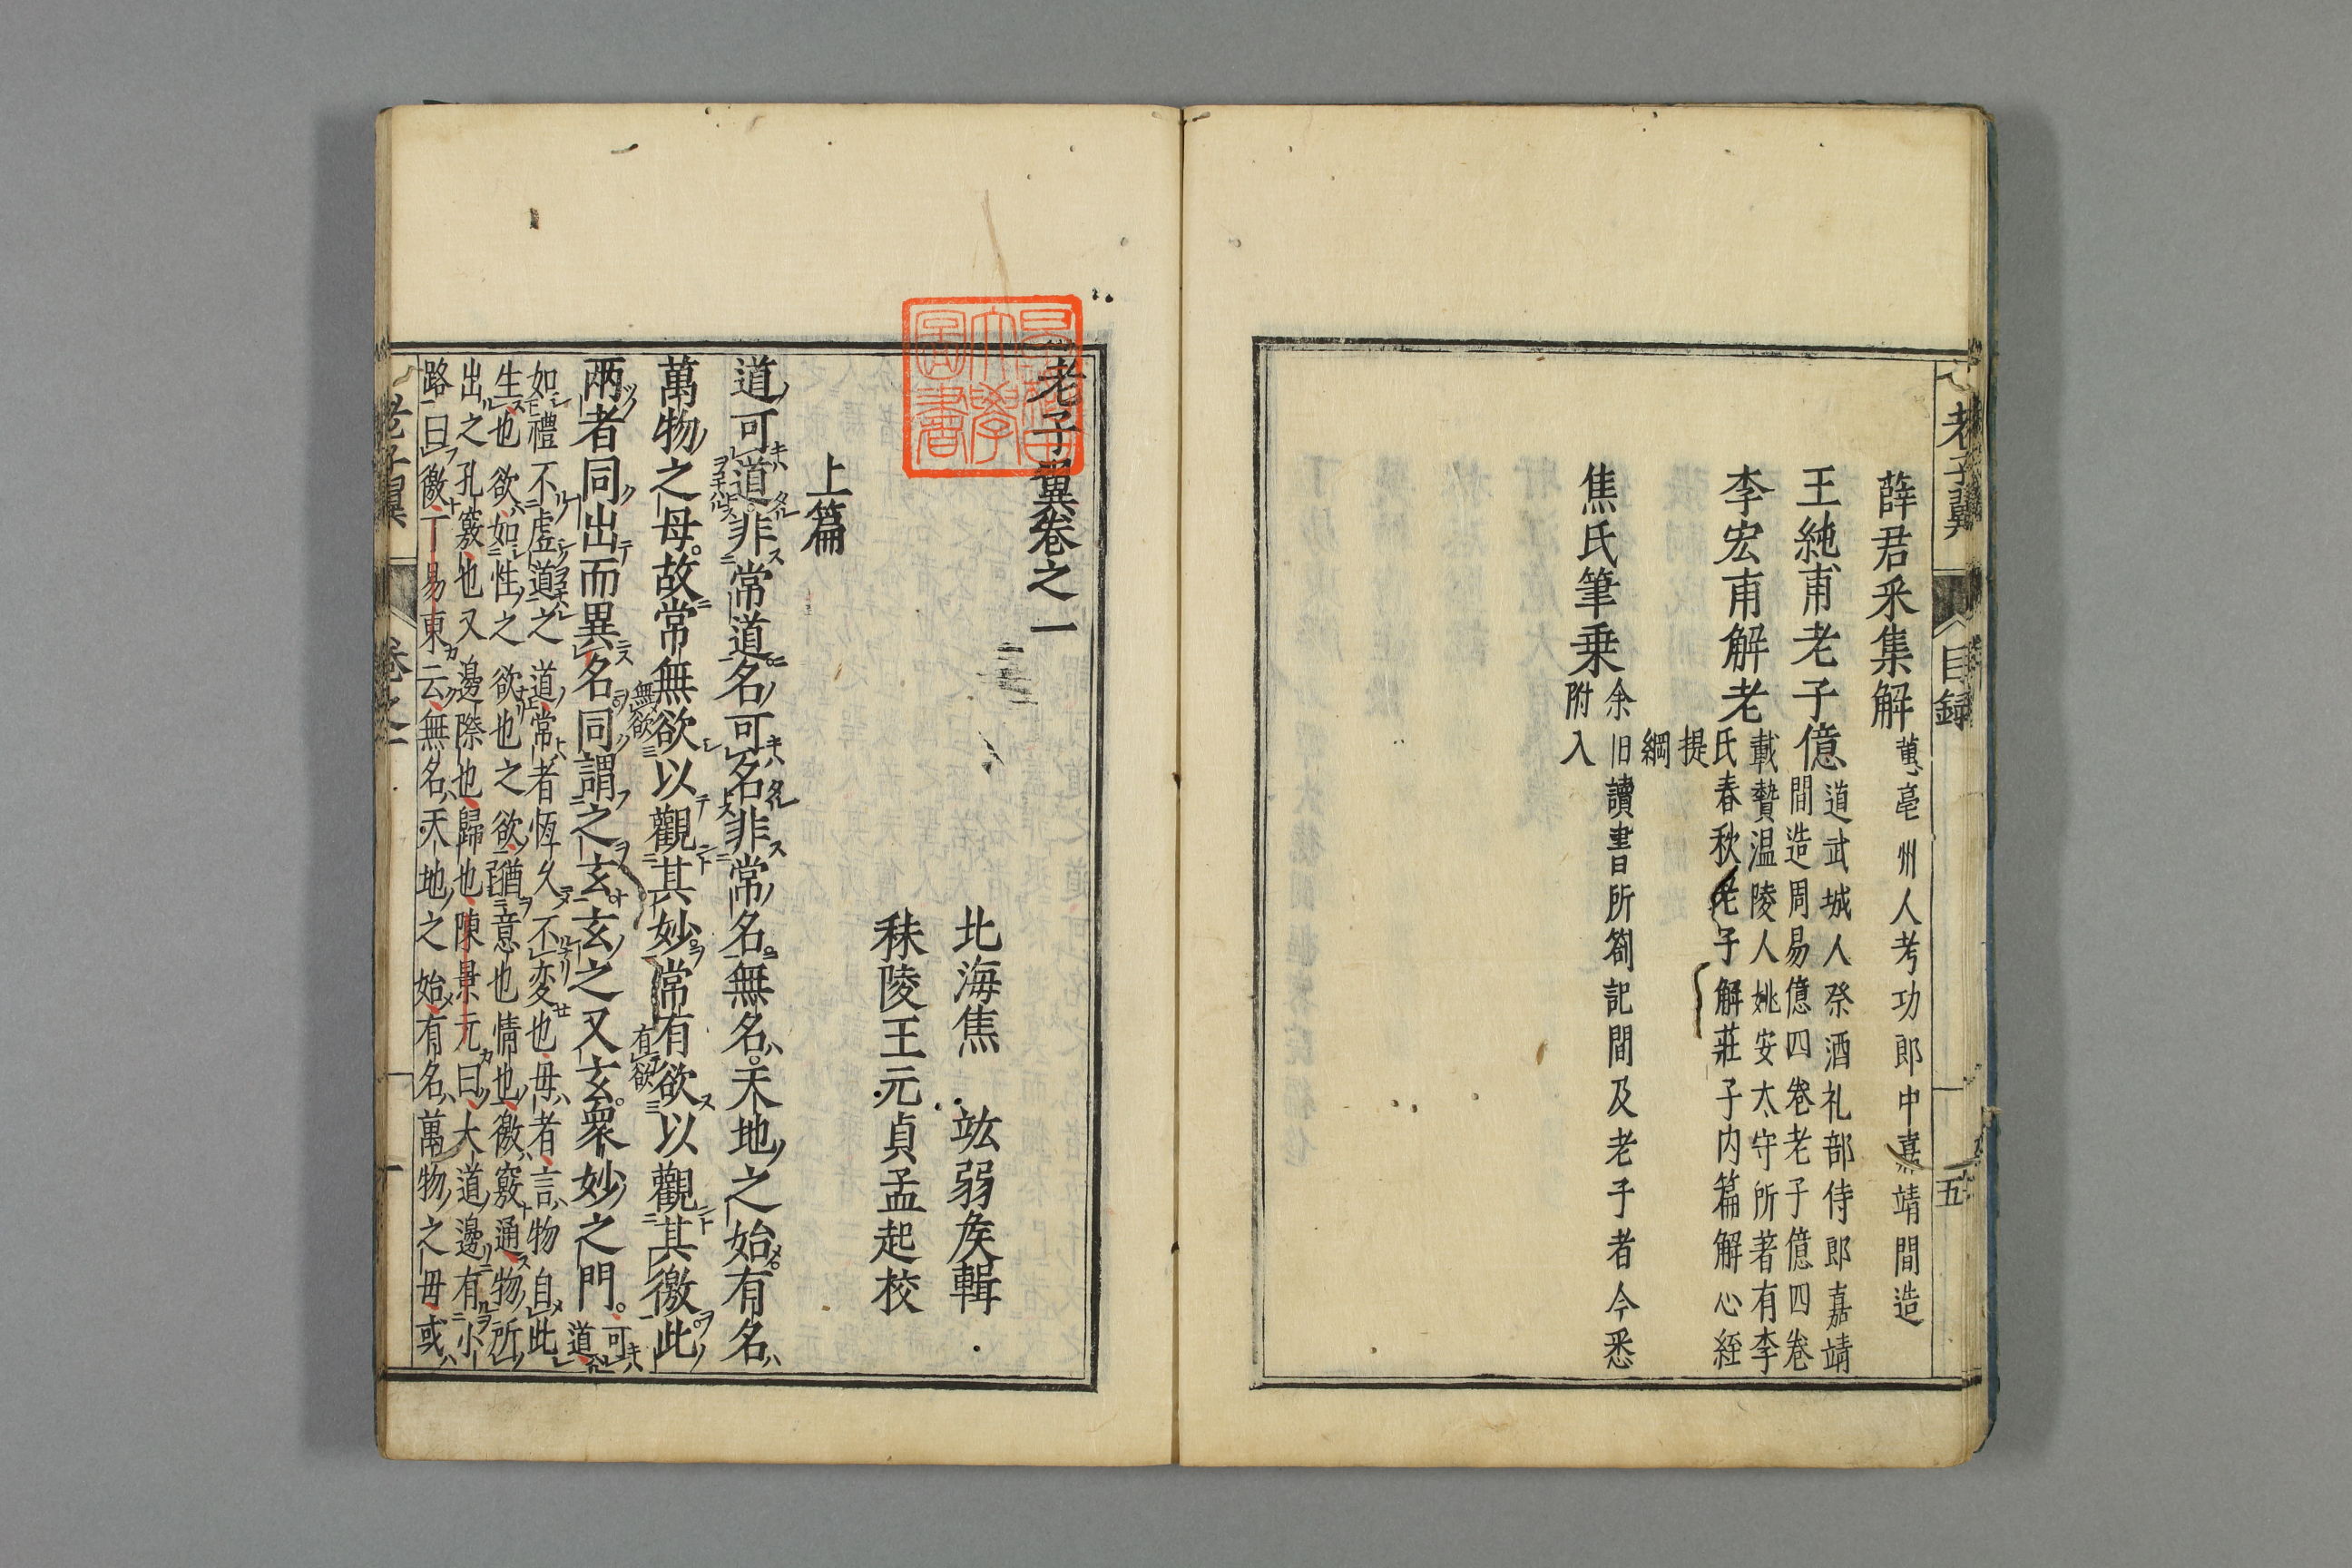 老子翼
目録
五
薛君采集解 蕙亳州人考功郎中嘉靖間造
王純甫老子億 道武城人祭酒礼部侍郎嘉靖
間造周易億四巻老子億四巻
李宏甫解老 載贄温陵人姚安太守所著有李
氏春秋老子解莊子内篇解心經
提
綱
焦氏筆乗 余旧讀書日所劄記間及老子者今悉
附入
老子翼巻之一
北海焦 竑弱矦輯
秣陵王元貞孟起校
上篇
道可道非常道名可名非常名無名天地之始有名
萬物之母故常無欲以觀其妙常有欲以觀其徼此
無欲
有欲
两者同出而異名同謂之玄玄之又玄衆妙之門 可
道
如禮不虚道之道常者恆久不変也母者言物自此
生也欲如性之欲也之欲猶意也情也徼竅通物所
出之孔竅也又邊際也歸也陳景元曰大道邊有小
路曰徼丁易東云無名天地之始有名萬物之母或
老子翼
巻之一
一